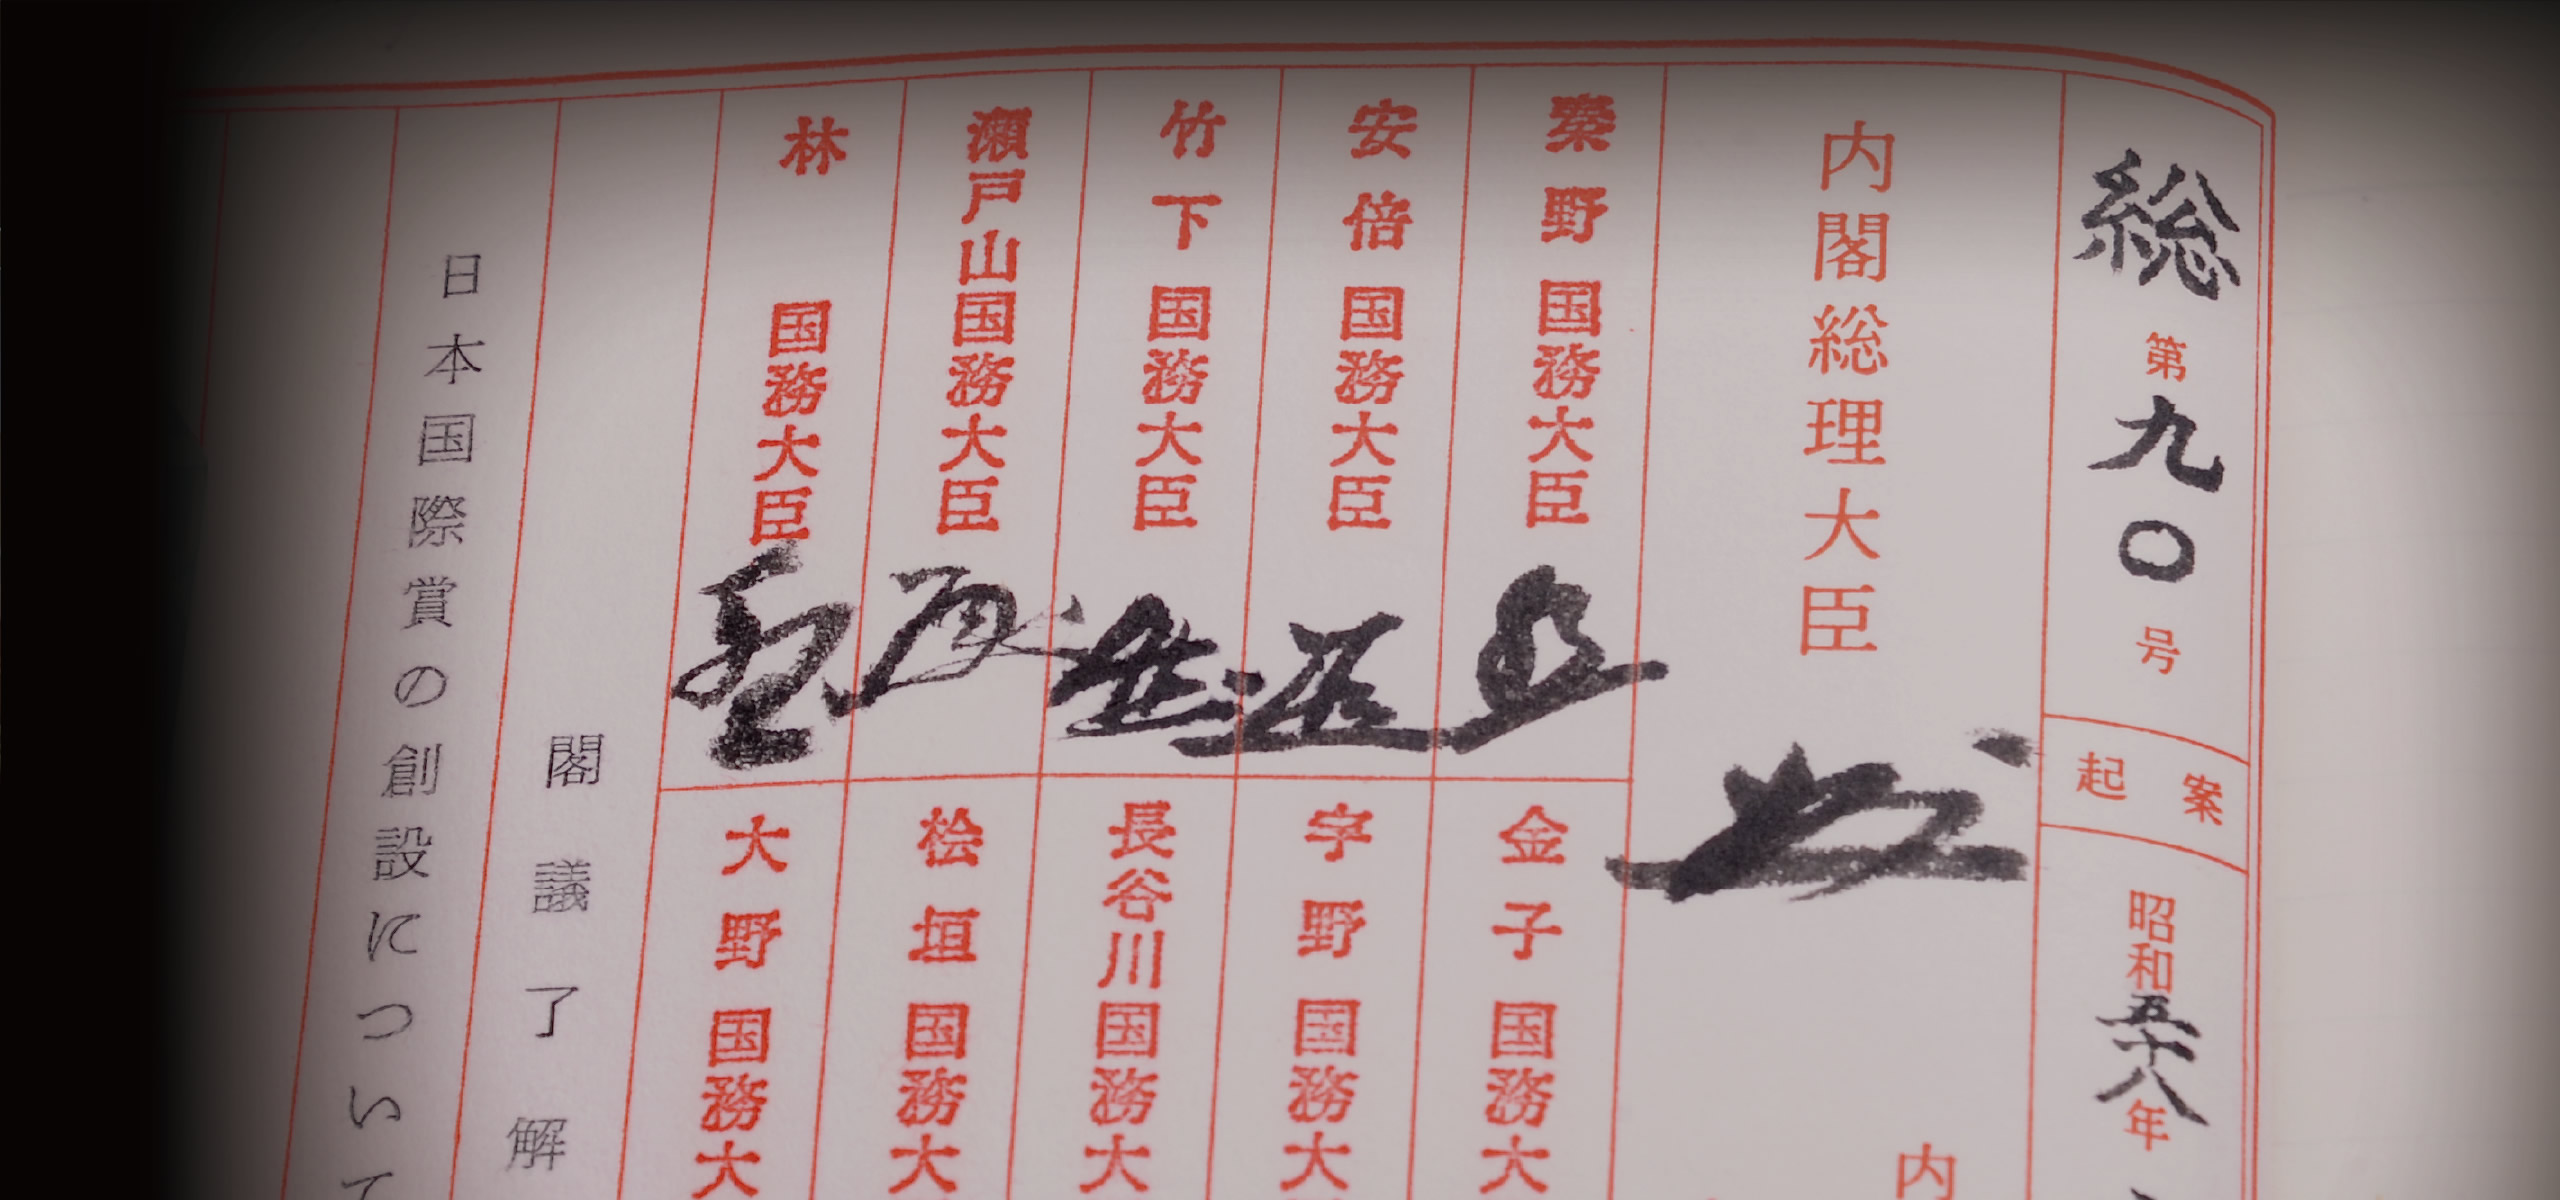 総第九〇号
起案
昭和五十八年
内閣総理大臣
内
秦野国務大臣
金子国務大
安倍国務大臣
宇野国務大
竹下国務大臣
長谷川国務大
瀬戸山国務大臣
桧垣国務大
林国務大臣
大野国務大
閣議了解
日本国際賞の創設について